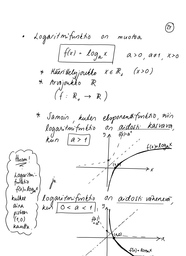 • Logaritmifunktio on muotoa
f(x) = log_a x   a>0, a≠1, x>0
* Määrittelyjoukko x ∈ R₊ (x>0)
* Arvojoukko R
(f: R₊ → R)
* Samoin, kuten eksponenttifunktio, niin
logaritmifunktio on aidosti kasvava,
kun a > 1
f(x) = log_a x
Huom!
Logaritmi-
funktio
f(x) = log_a x
kulkee
aina
pisteen
(1,0)
kautta.
Logaritmifunktio on aidosti vähenevä,
kun 0 < a < 1,
f(x) = log_a x